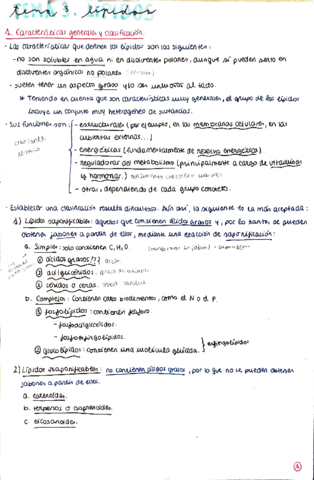 tema 3. lípidos
1. Características generales y clasificación.
· Las características que definen los lípidos son las siguientes:
- no son solubles en agua ni en disolventes polares, aunque sí pueden serlo en
disolventes orgánicos no polares.
- suelen tener un aspecto graso y/o ser untuosos al tacto.
* Teniendo en cuenta que son características muy generales, el grupo de los lípidos
incluye un conjunto muy heterogéneo de sustancias.
· Sus funciones son:
- estructurales (por ejemplo, en las membranas celulares, en las
cubiertas externas...)
- energéticas (fundamentalmente de reserva energética).
- reguladoras del metabolismo (principalmente a cargo de vitaminas
y hormonas).
- otras, dependiendo de cada grupo concreto.
· Establecer una clasificación resulta dificultoso. Aun así, la siguiente es la más aceptada:
1) Lípidos saponificables: aquellos que contienen ácidos grasos y, por lo tanto, se pueden
obtener jabones a partir de ellos, mediante una reacción de saponificación:
a. Simples: solo contienen C, H, O.
① ácidos grasos
② acilglicéridos.
③ céridos o ceras.
b. Complejos: Contienen otros bioelementos, como el N o el P.
① fosfolípidos: contienen fósforo.
- fosfoglicéridos.
- fosfoesfingolípidos.
② glucolípidos: contienen una molécula glucídica.
esfingolípidos
2) Lípidos insaponificables: no contienen ácidos grasos, por lo que no se pueden obtener
jabones a partir de ellos.
a. esteroides.
b. terpenos o isoprenoides.
c. eicosanoides.